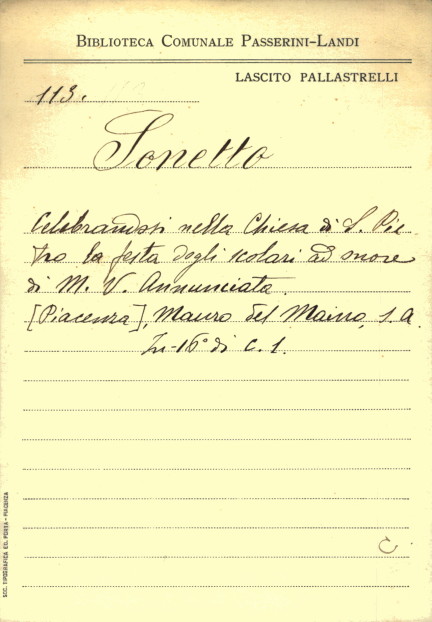 BIBLIOTECA COMUNALE PASSERINI-LANDI
LASCITO PALLASTRELLI
113.
Sonetto
Celebrandosi nella Chiesa di S. Pie-
tro la festa degli scolari ad onore
di M. V. Annunciata.
[Piacenza], Mauro del Maino, s. a.
In-16° di c. 1.
C
SOC. TIPOGRAFICA ED. PORTA - PIACENZA